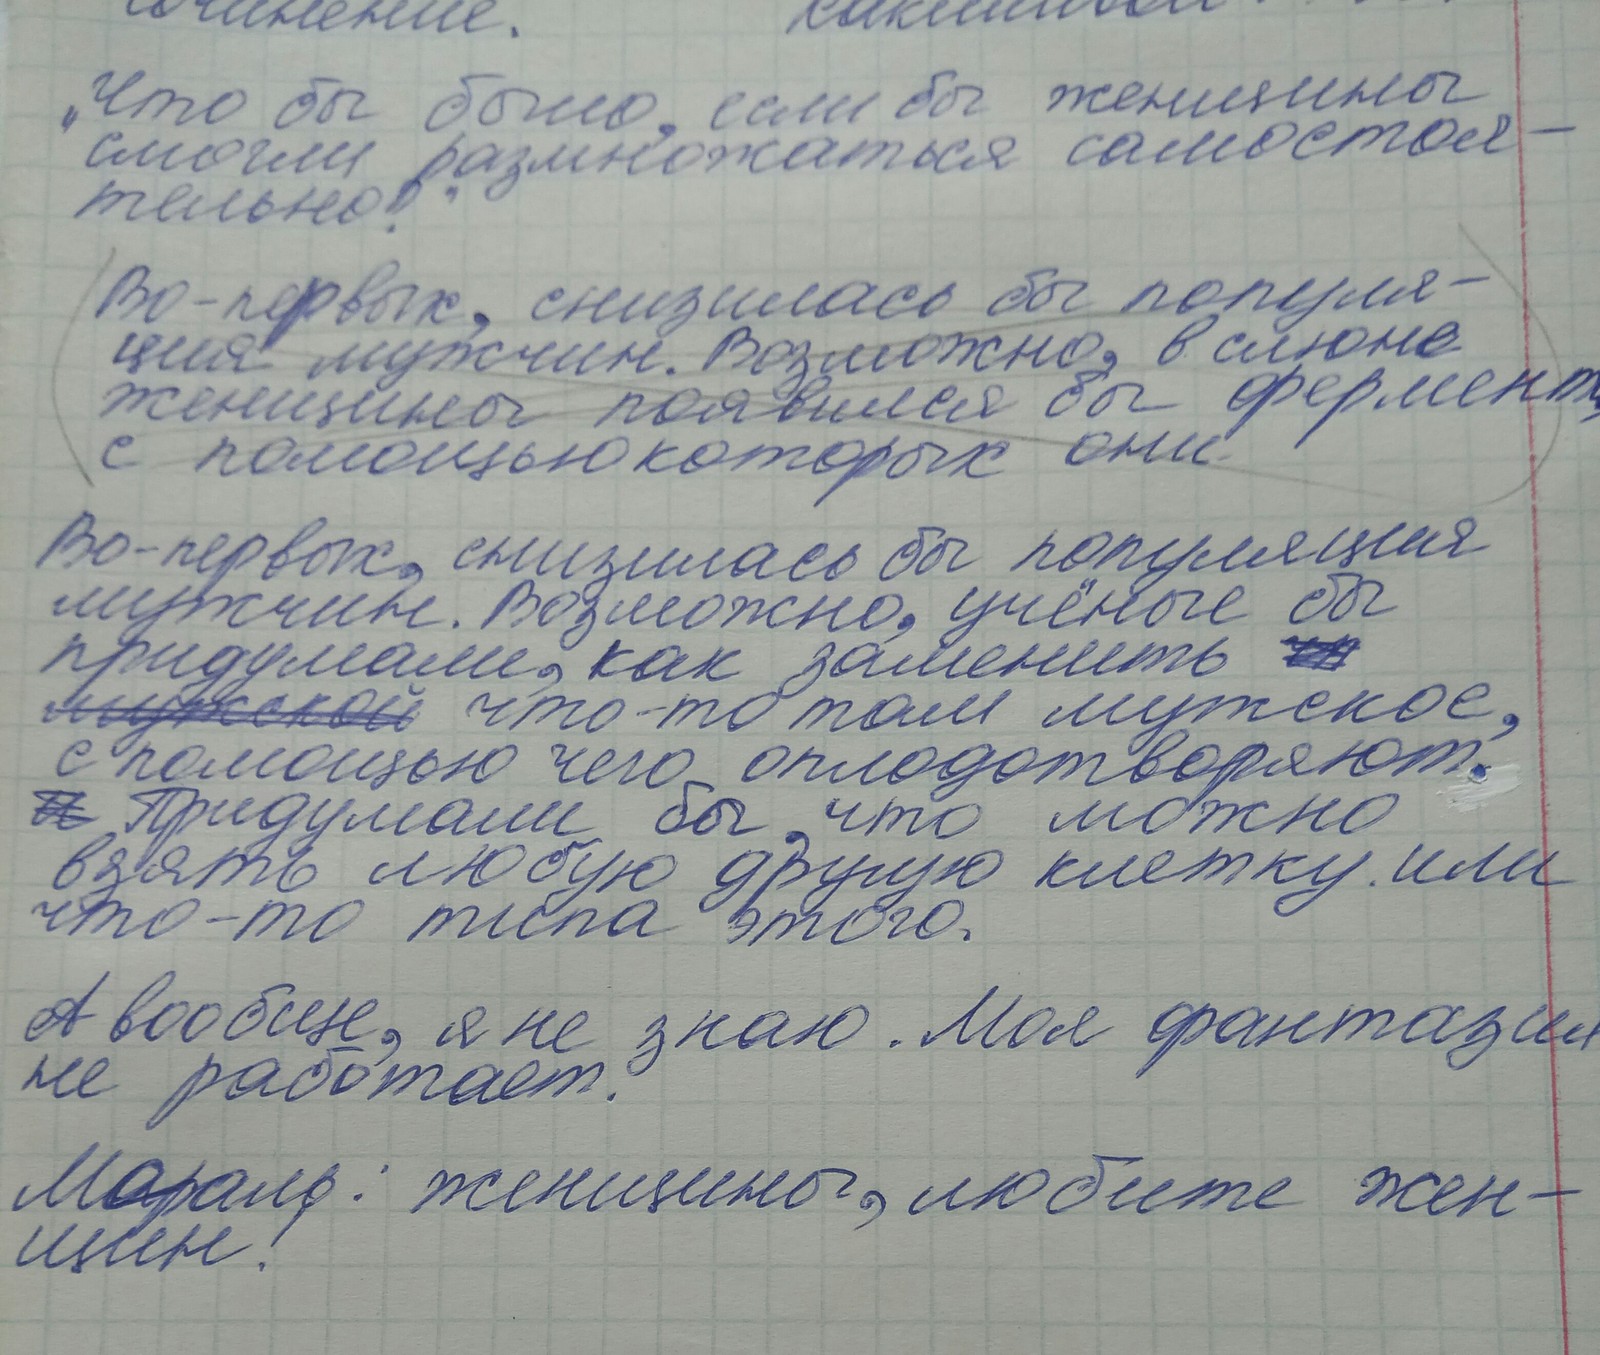 сочинение.
„Что бы было, если бы женщины
смогли размножаться самостоя-
тельно?"
Во-первых, снизилась бы популя-
ция мужчин. Возможно, в слюне
женщины появился бы фермент,
с помощью которых они
Во-первых, снизилась бы популяция
мужчин. Возможно, учёные бы
придумали, как заменить
мужской что-то там мужское,
с помощью чего оплодотворяют.
Придумали бы, что можно
взять любую другую клетку. или
что-то типа этого.
А вообще, я не знаю. Моя фантазия
не работает.
Мораль: женщины, любите жен-
щин!